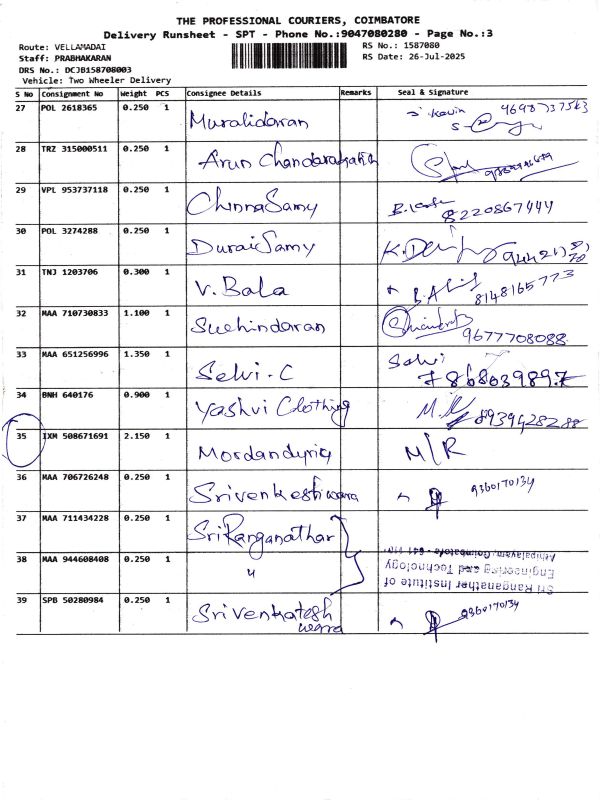 THE PROFESSIONAL COURIERS, COIMBATORE
Delivery Runsheet - SPT - Phone No.:9047080280 - Page No.:3
Route: VELLAMADAI
RS No.: 1587080
Staff: PRABHAKARAN
RS Date: 26-Jul-2025
DRS No.: DCJB158708003
Vehicle: Two Wheeler Delivery
S No Consignment No Weight PCS Consignee Details Remarks Seal & signature
27 POL 2618365 0.250 1 Muralidaran Kavin
28 TRZ 315000511 0.250 1 Arun
29 VPL 953737118 0.250 1 ChinnaSamy 8220867444
30 POL 3274288 0.250 1 DuraiSamy
31 TNJ 1203706 0.300 1 V. Bala 8148165773
32 MAA 710730833 1.100 1 Suchindaran 9677708088
33 MAA 651256996 1.350 1 Selvi - C Selvi 7868039897
34 BNH 640176 0.900 1 Yashvi Clothing 8939428288
35 IXM 508671691 2.150 1 M/R
36 MAA 706726248 0.250 1 9360170134
37 MAA 711434228 0.250 1 Sri Ranganathar
38 MAA 944608408 0.250 1 "
Sri Ranganathar Institute of
Engineering and Technology
Athipalayam, Coimbatore - 641 110
39 SPB 50280984 0.250 1 Srivenkatesh 9360170134
wara